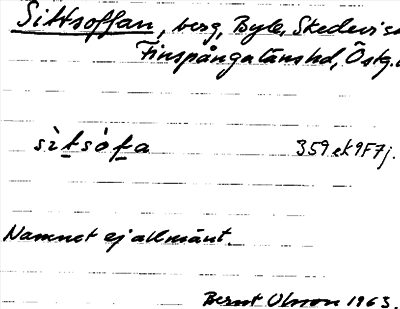 Sittsoffan, berg, Byle, Skedevi s
Finspångalänshd, Östg.
sìtsòfa 359 ek 9F7j.
Namnet ej allmänt.
Bernt Olsson 1963.